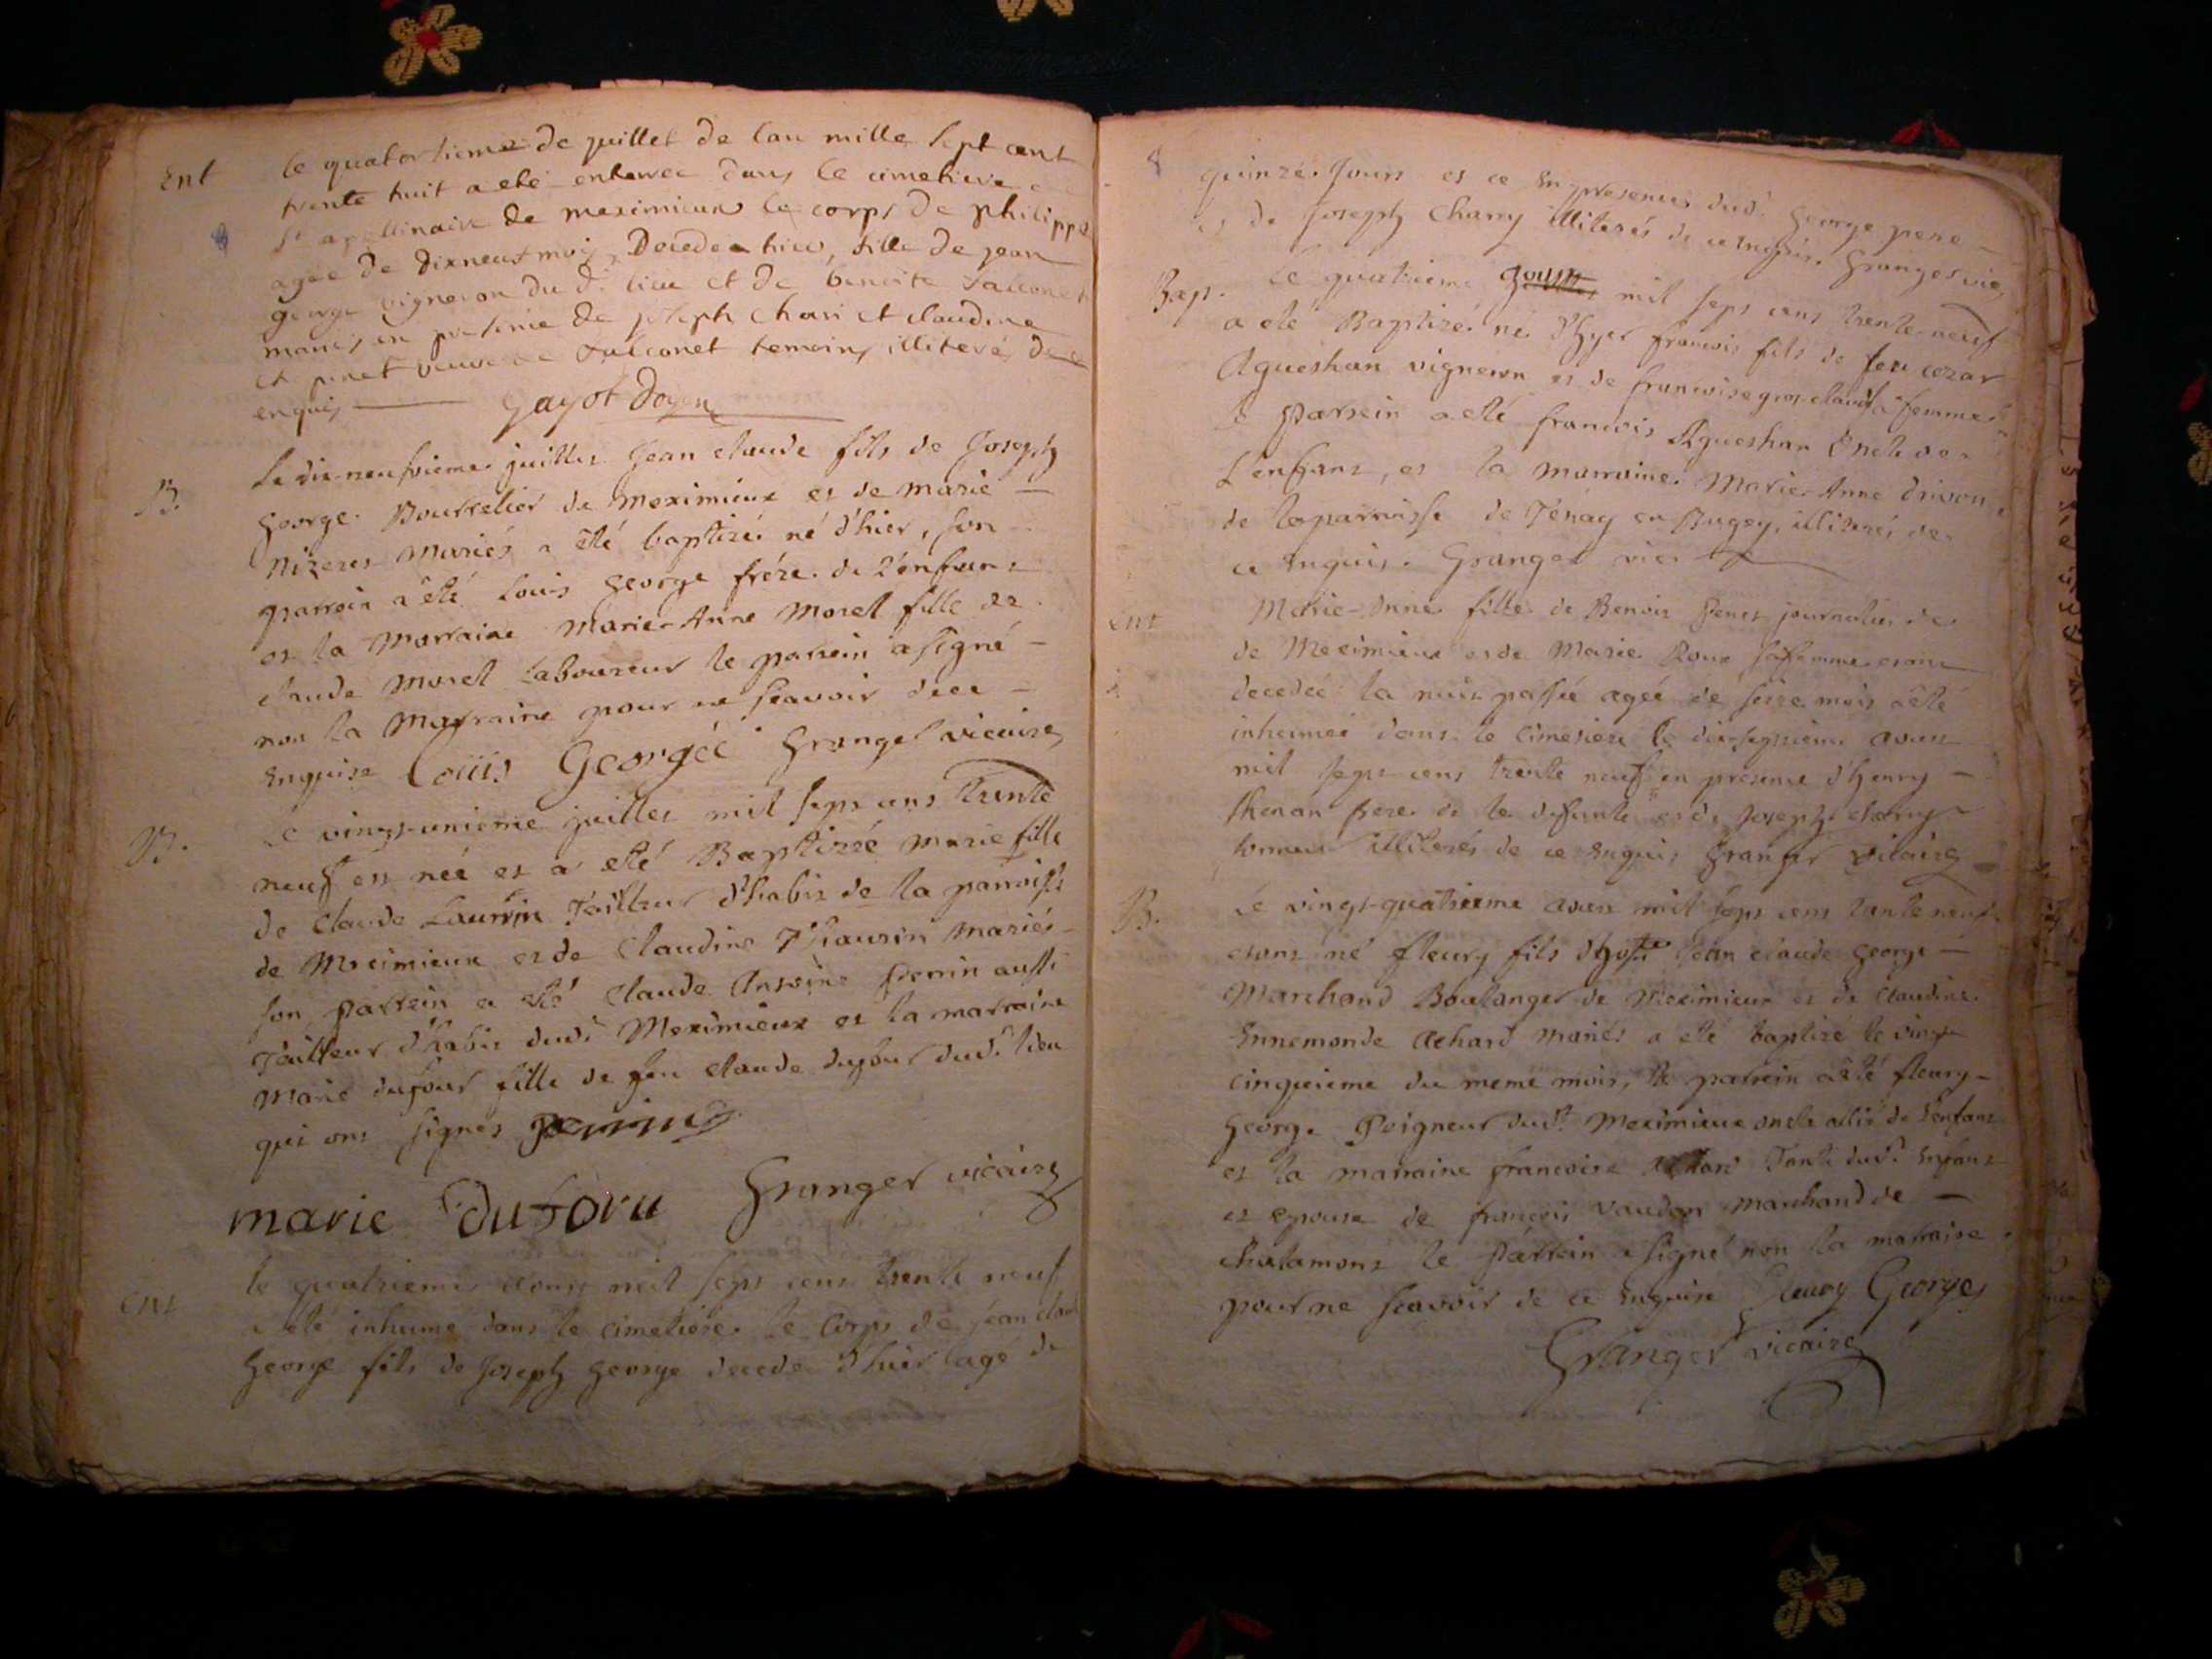 Ent
le quatorsieme de juillet de lan mille sept cent
trente huit a eté enterree dans le cimetiere
st apollinaire de meximieux le corps de philippe
agee de dixneuf mois, Decedee hier, fille de jean
george vigneron du dt lieu et de benoite falconet
mariés en presence de joseph chari et claudine
pinet veuve de falconet temoins illiterés de ce
enquis gayot Doyen
B.
Le dix-neufvieme juillet Jean claude fils de Joseph
George Bourrelier de Meximieux et de marie
Nizeres Mariés a été baptizé né d'hier, son
parrein a été Louis George frére de L'enfant
et la Marraine Marie-Anne Morel fille de
claude Morel Laboureur le parrein a signé
non la Marraine pour ne sçavoir de ce
Enquise Loüis Georgée Granger vicaire
B.
Le vingt-unieme juillet mil sept cens trente
neuf est née et a eté Baptizée Marie fille
de Claude Laurrin Tailleur d'habit de la parroisse
de Meximieux et de Claudine mariés
son parrein a eté Claude Antoine Perrin aussi
Tailleur d'habit dudt Meximieux et la marraine
Marie dufour fille de feu Claude dufour dudt lieu
qui ont signés perrin
marie Duforu Granger vicaire
ent
le quatrieme aoust mil sept cens trente neuf
a eté inhumé dans le cimetiére le Corps de Jean claude
George fils de Joseph George decedé d'hier agé de
8
quinze Jours et ce En presence dudt George pere
et de Joseph Charry illiterés de ce enquis. Granger vic
Bap.
Le quatrieme mil sept cens trente-neuf
a eté Baptizé né d'hyer francois fils de feu cezar
Agueshan vigneron et de francoise femme
Le Parrein a eté francois Agueshan Oncle de
L'enfant, et la marraine Marie-Anne
de la parroisse de Ténay en Bugey, illiterés de
ce enquis. Granger vic.
ent
Marie-Anne fille de Benoit journalier de
de Meximieux et de Marie Roux sa femme etant
decedée la nuit passée agée de seize mois a été
inhumée dans le cimetiere le dix-septieme aoust
mil sept cens trente neuf en presence d'henry
thenan frere de la defunte et de Joseph charry
temoins illiterés de ce enquis Granger vicaire
B.
Le vingt-quatrieme aoust mil sept cens trante neuf
etant né fleury fils d'hote Jean claude George
Marchand Boulanger de Meximieux et de Claudine
Ennemonde Achard Mariés a eté baptizé le vingt
cinquieme du meme mois, le parrein a été fleury
George Peigneur dudt Meximieux oncle allié de L'enfant
et la marraine francoise Achard Tante dudt Enfant
et epouse de françois vaudan Marchand de
chalamont le Parrein a signé non la marraine
pour ne scavoir de ce Enquise fleury Georges
Granger vicaire